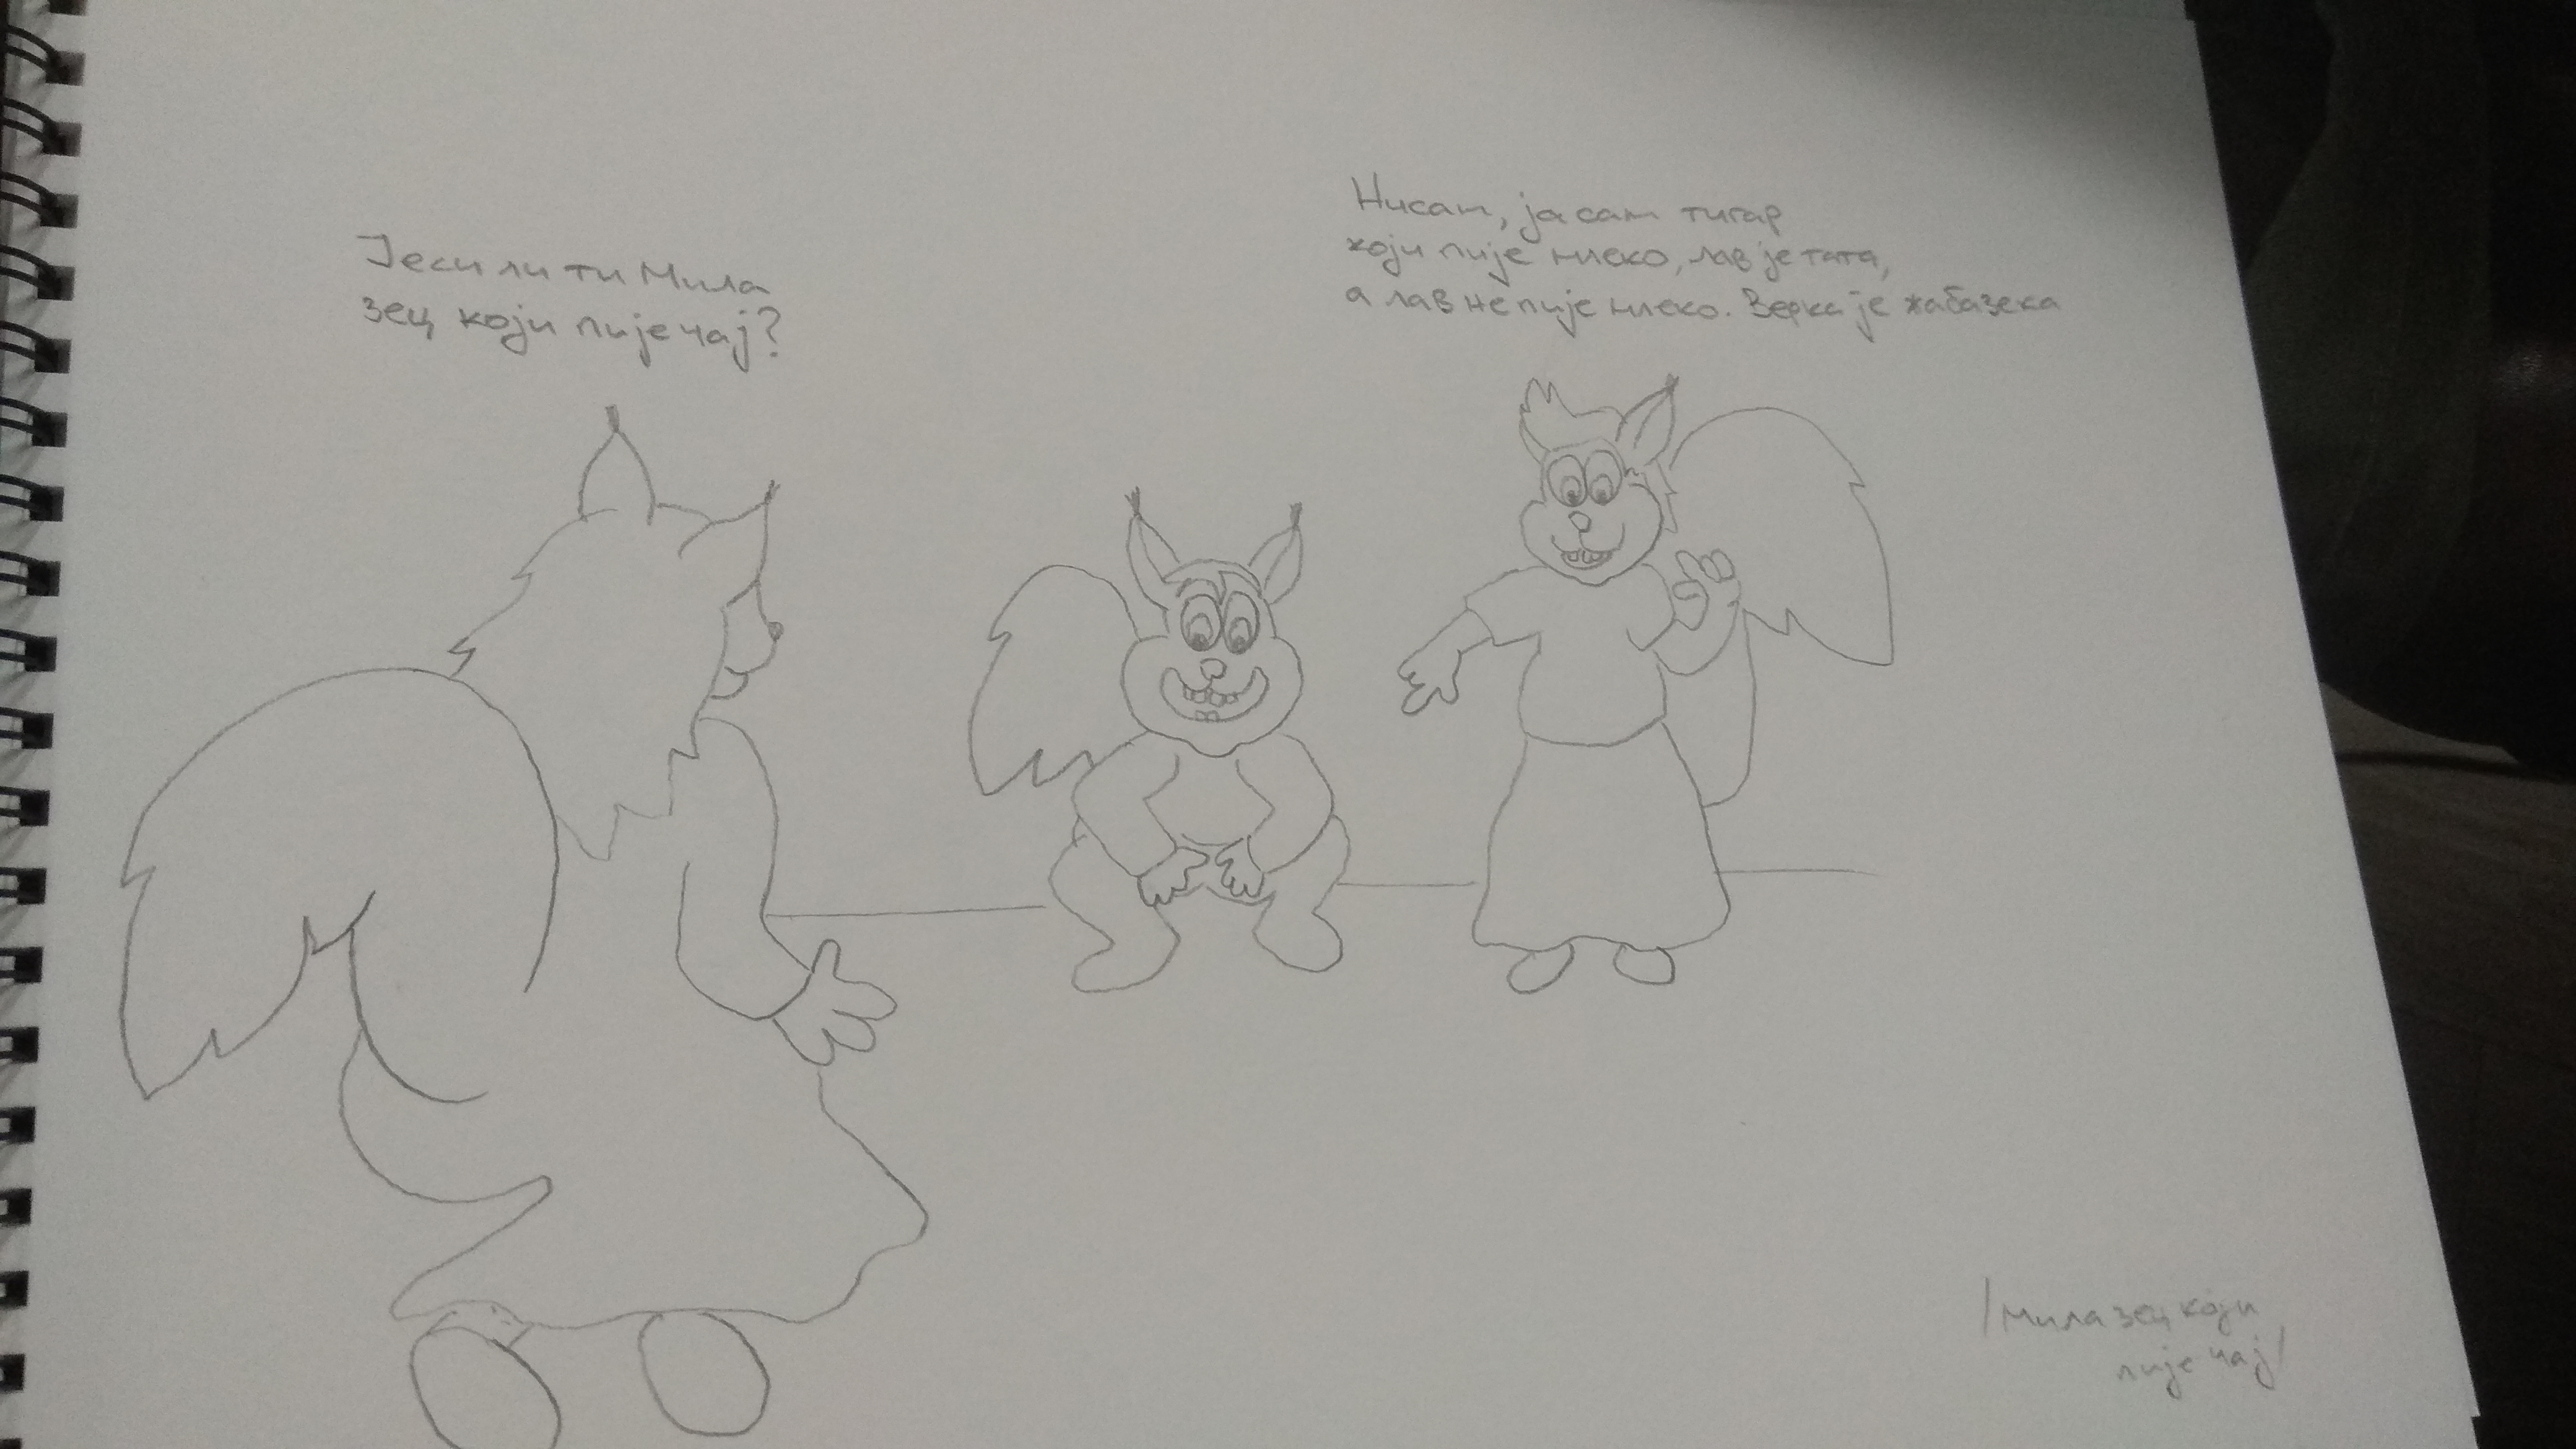 Јеси ли ти Мила
зец који пије чај?
Нисам, ја сам тигар
који пије млеко, лав је тата,
а лав не пије млеко. Верка је жабазека
/Мила зец који
пије чај/